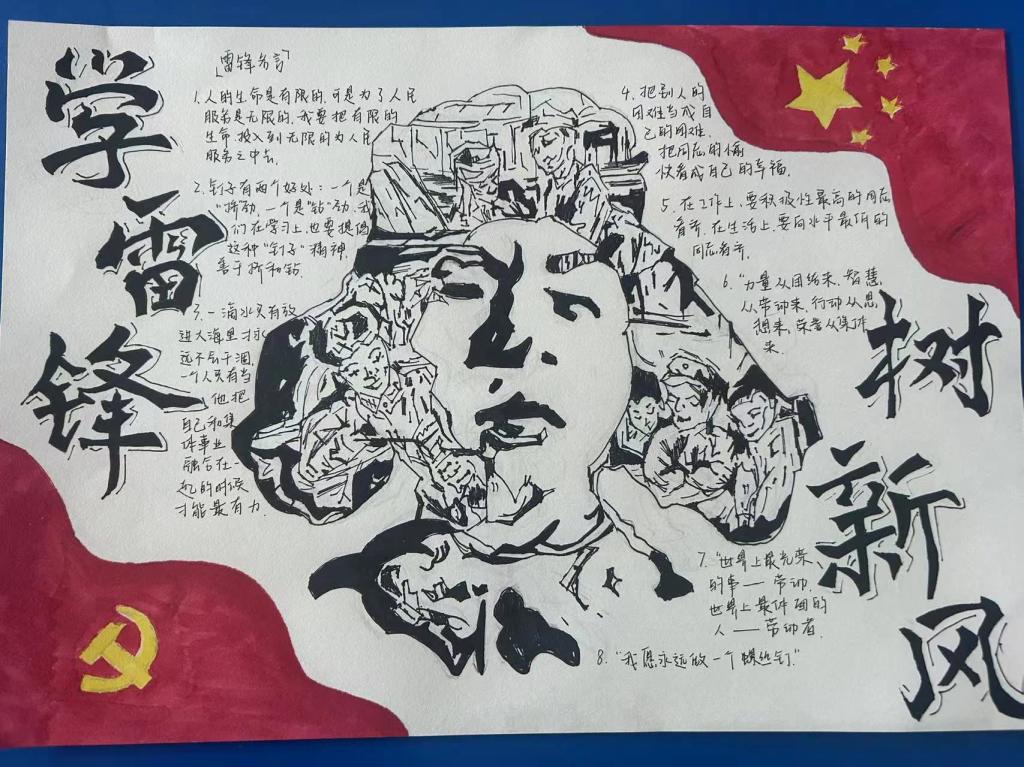 学雷锋
「雷锋名言」
1. 人的生命是有限的, 可是为了人民
服务是无限的, 我要把有限的
生命, 投入到无限的为人民
服务之中去.
2. 钉子有两个好处: 一个是
"挤"劲, 一个是"钻"劲, 我
们在学习上, 也要提倡
这种"钉子"精神,
善于挤和钻.
3. 一滴水只有放
进大海里才永
远不会干涸,
一个人只有当
他把
自己和集
体事业
融合在一
起的时候
才能最有力.
4. 把别人的
困难当成自
己的困难.
把同志的愉
快看成自己的幸福.
5. 在工作上, 要积极性最高的同志
看齐, 在生活上, 要向水平最低的
同志看齐.
6. "力量从团结来, 智慧
从劳动来, 行动从思
想来, 荣誉从集体
来.
7. "世界上最光荣
的事——劳动.
世界上最体面的
人——劳动者.
8. "我愿永远做一个螺丝钉."
树新风